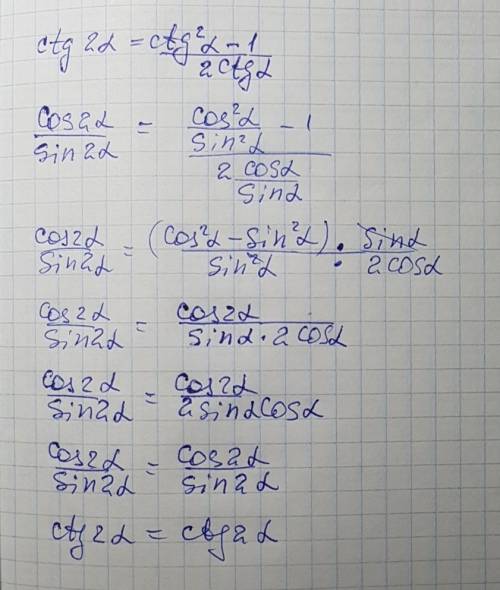 ctg 2α = (ctg²α − 1)/(2ctgα)
cos2α/sin2α = (cos²α/sin²α − 1)/(2 cosα/sinα)
cos2α/sin2α = (cos²α − sin²α)/sin²α · sinα/2cosα
cos2α/sin2α = cos2α/(sinα · 2cosα)
cos2α/sin2α = cos2α/(2sinαcosα)
cos2α/sin2α = cos2α/sin2α
ctg2α = ctg2α